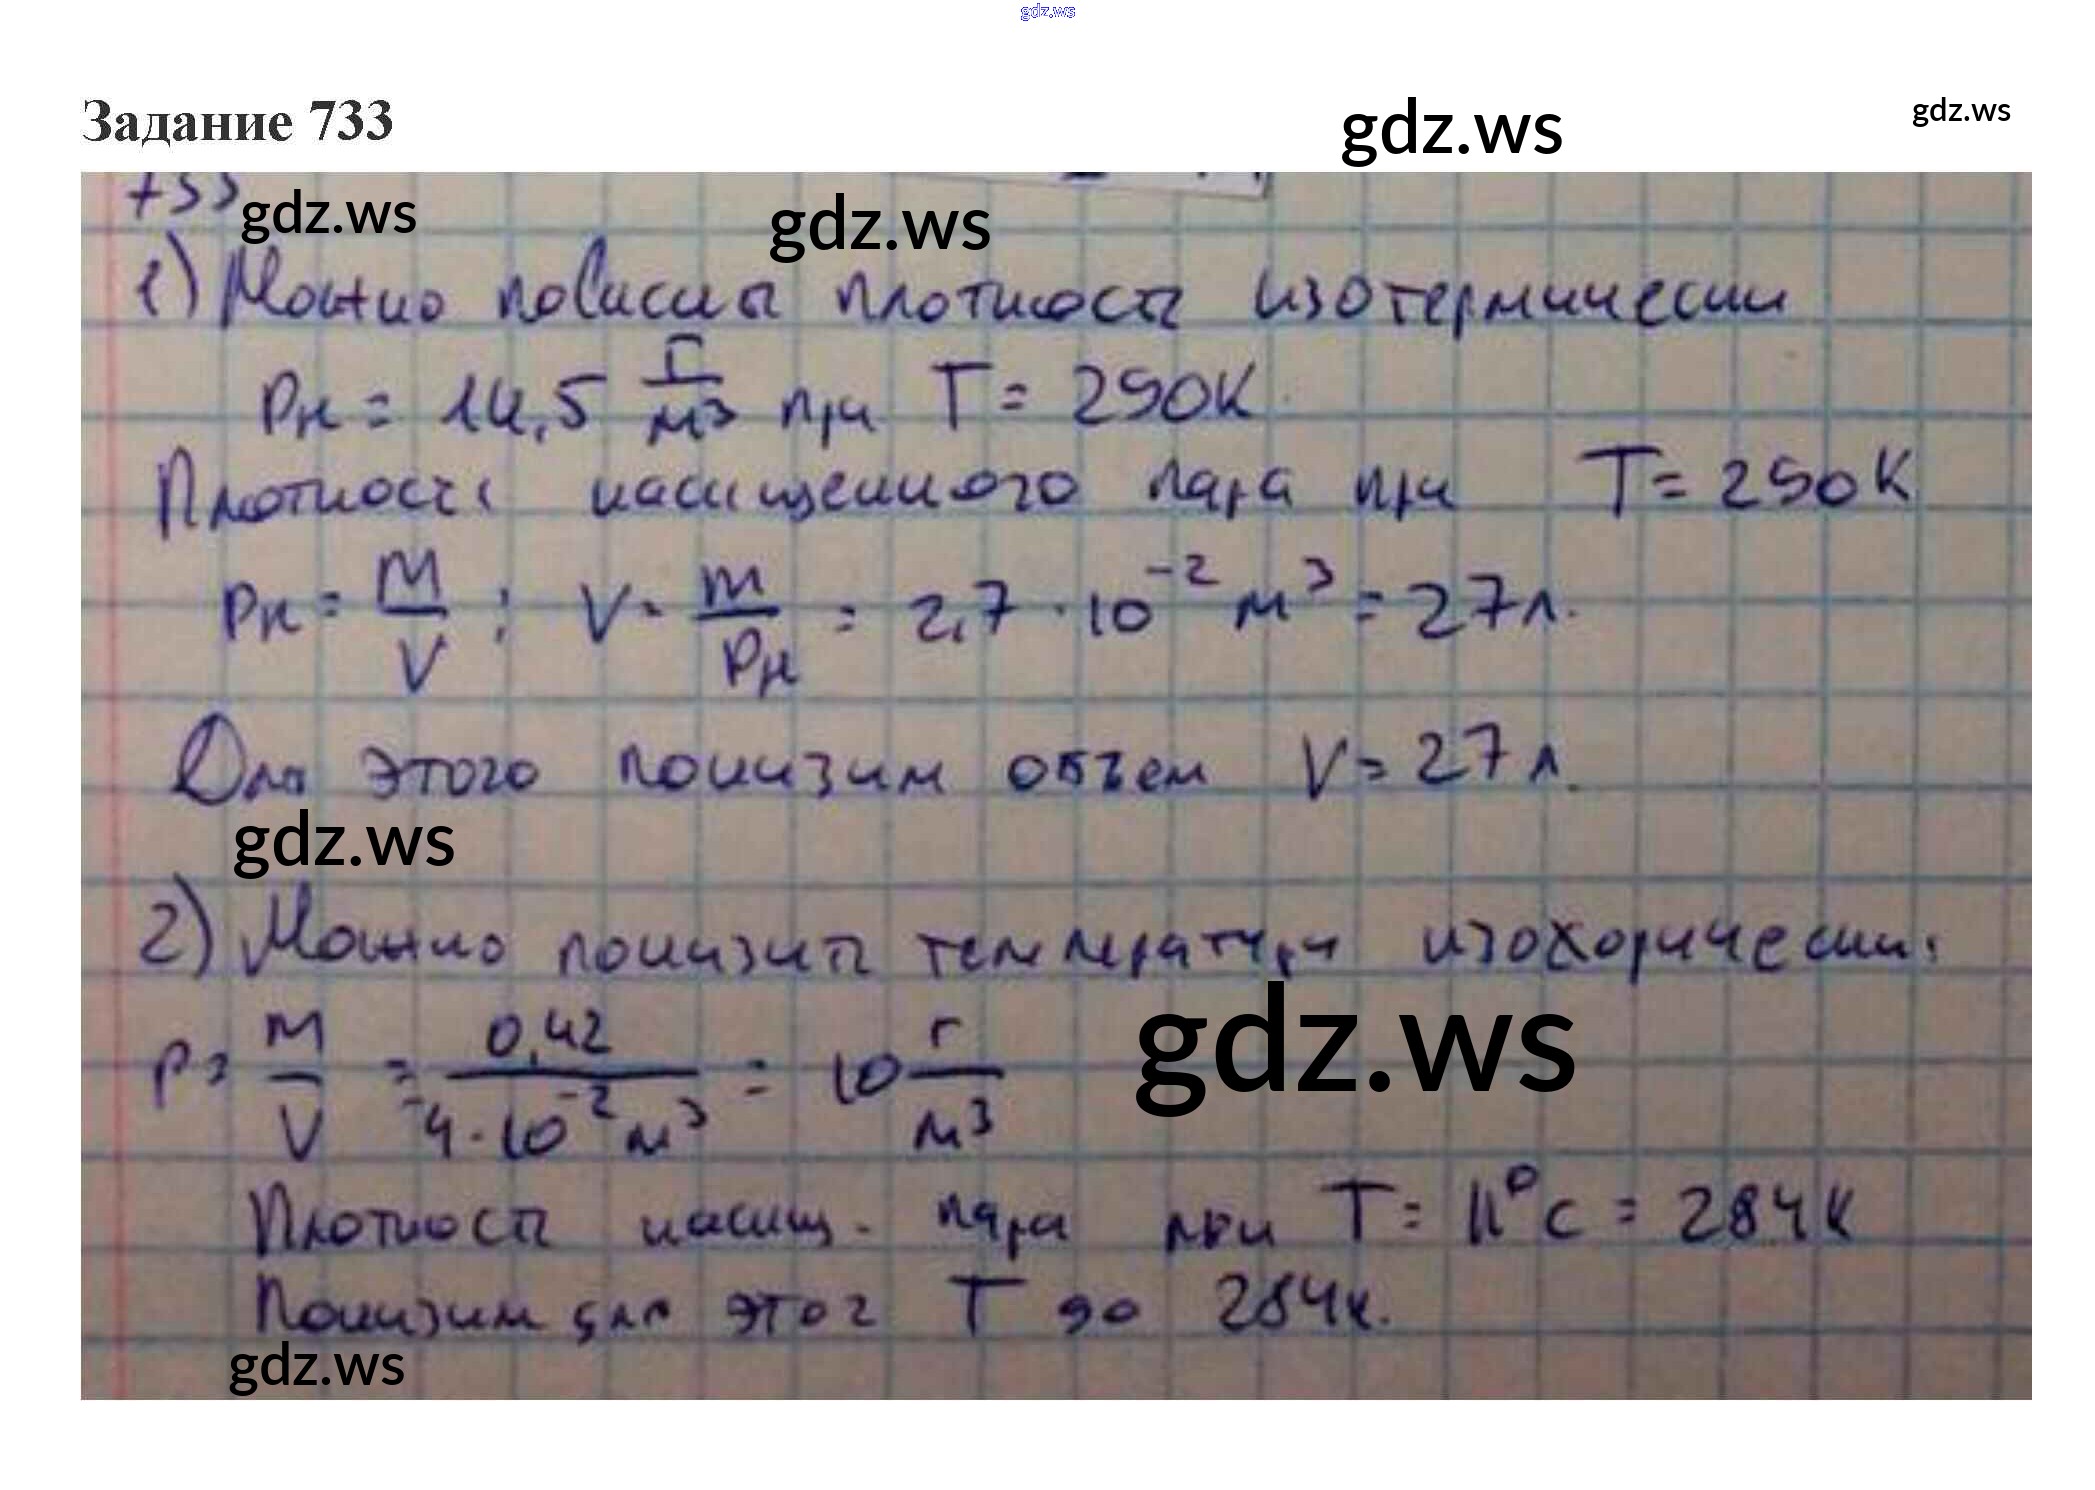 gdz.ws
Задание 733
gdz.ws
gdz.ws
733
gdz.ws
gdz.ws
1) Можно повысить плотность изотермически
ρн = 14,5 г/м³ при T = 290К
Плотность насыщенного пара при T = 290К
ρн = m/V ; V = m/ρн = 2,7 · 10⁻² м³ = 27л.
Для этого понизим объем V = 27л.
gdz.ws
2) Можно понизить температуру изохорически:
ρ = m/V = 0,42/4·10⁻² м³ = 10 г/м³
gdz.ws
Плотность насыщ. пара при T = 11°C = 284К
Понизим для этог T до 284К.
gdz.ws